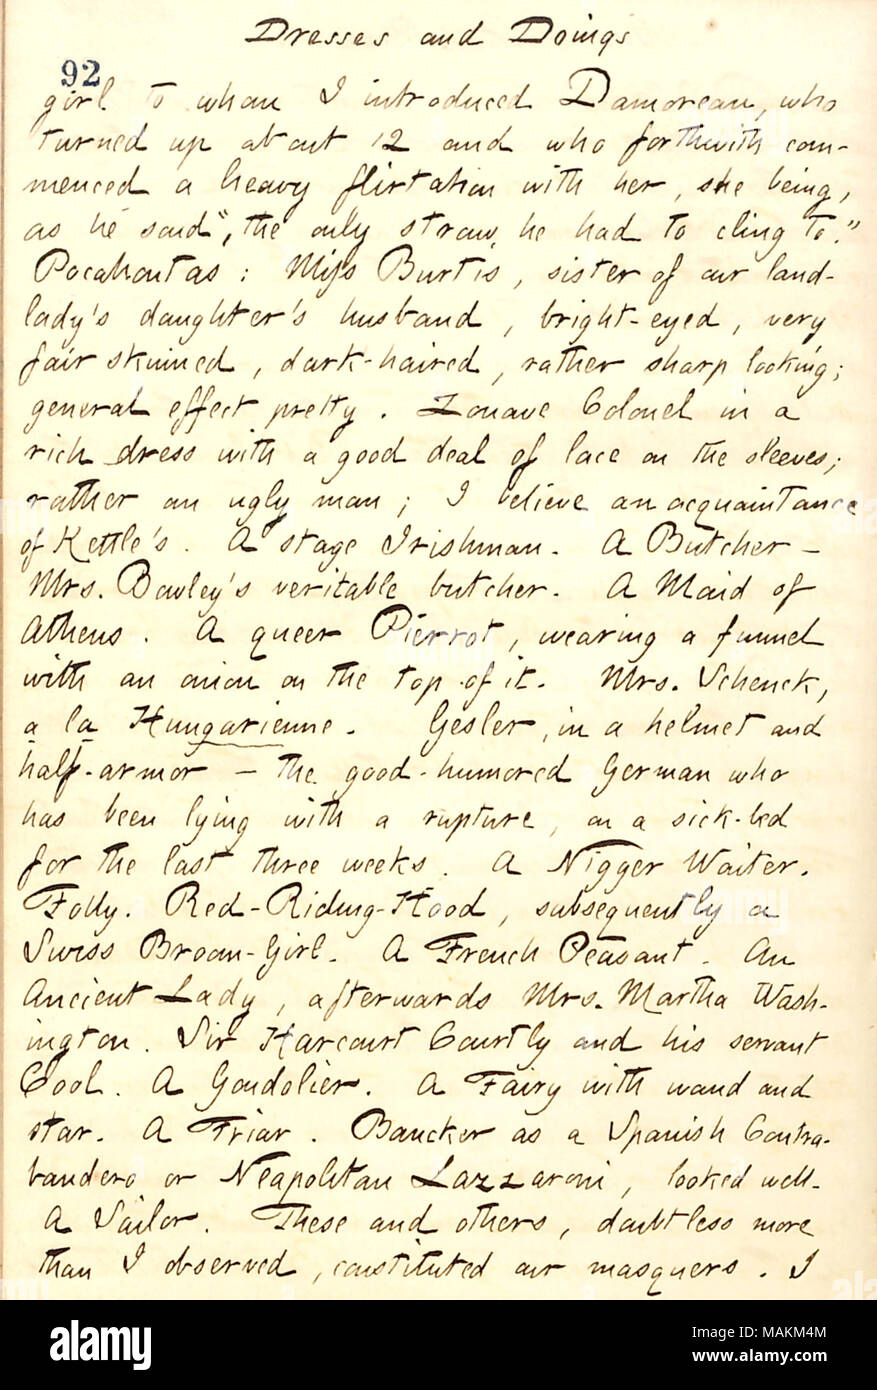 Dresses and Doings
92
girl to whom I introduced Damoreau, who
turned up about 12 and who forthwith com-
menced a heavy flirtation with her, she being,
as he said, "the only straw he had to cling to."
Pocahontas: Miss Burtis, sister of our land-
lady's daughter's husband, bright-eyed, very
fair skinned, dark-haired, rather sharp looking;
general effect pretty. Zouave Colonel in a
rich dress with a good deal of lace on the sleeves;
rather an ugly man; I believe an acquaintance
of Kettle's. A stage Irishman. A Butcher —
Mrs. Bowley's veritable butcher. A Maid of
Athens. A queer Pierrot, wearing a funnel
with an onion on the top of it. Mrs. Schenck,
a la Hungarienne. Gesler, in a helmet and
half-armor — the good-humored German who
has been lying with a rupture, on a sick-bed
for the last three weeks. A Nigger Waiter.
Folly. Red-Riding-Hood, subsequently a
Swiss Broom-Girl. A French Peasant. An
Ancient Lady, afterwards Mrs. Martha Wash-
ington. Sir Harcourt Courtly and his servant
Cool. A Gondolier. A Fairy with wand and
star. A Friar. Bancker as a Spanish Contra-
bandero or Neapolitan Lazzaroni, looked well.
A Sailor. These and others, doubtless more
than I observed, constituted our masquers. I
alamy
Image ID: MAKM4M
www.alamy.com